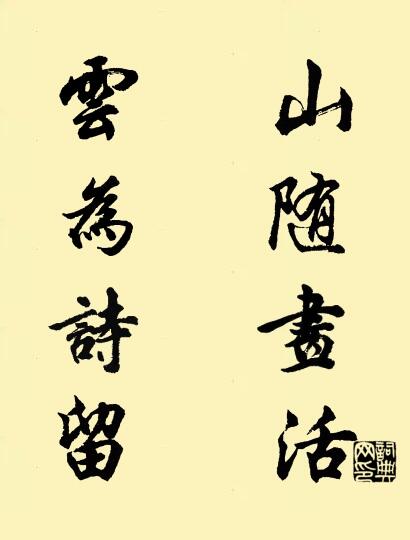 山随畫活
雲為詩留
詞典網印